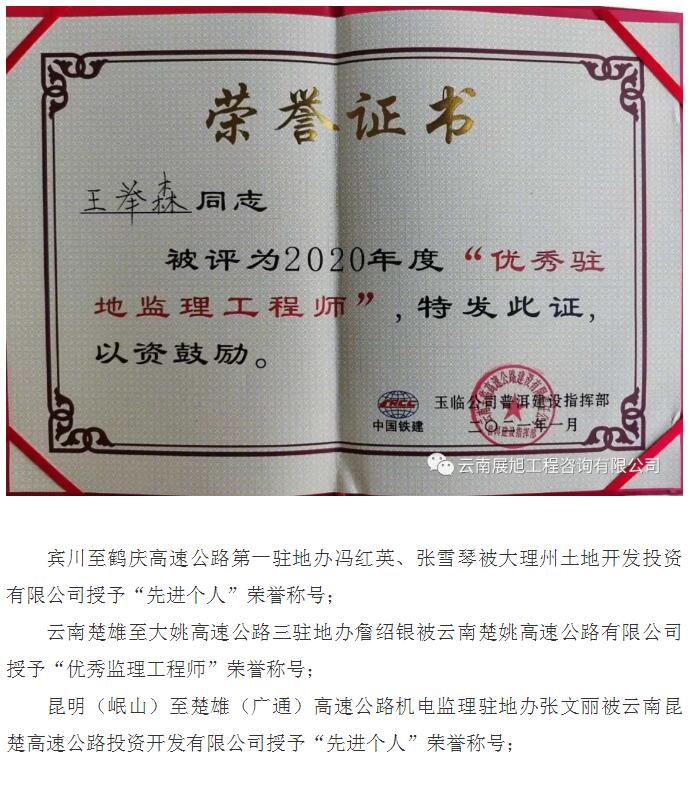 荣誉证书
王举森同志
被评为2020年度“优秀驻
地监理工程师”,特发此证,
以资鼓励。
CRCC
中国铁建
玉临公司普洱建设指挥部
二〇二一年一月
云南展旭工程咨询有限公司
宾川至鹤庆高速公路第一驻地办冯红英、张雪琴被大理州土地开发投资
有限公司授予“先进个人”荣誉称号；
云南楚雄至大姚高速公路三驻地办詹绍银被云南楚姚高速公路有限公司
授予“优秀监理工程师”荣誉称号；
昆明（岷山）至楚雄（广通）高速公路机电监理驻地办张文丽被云南昆
楚高速公路投资开发有限公司授予“先进个人”荣誉称号；